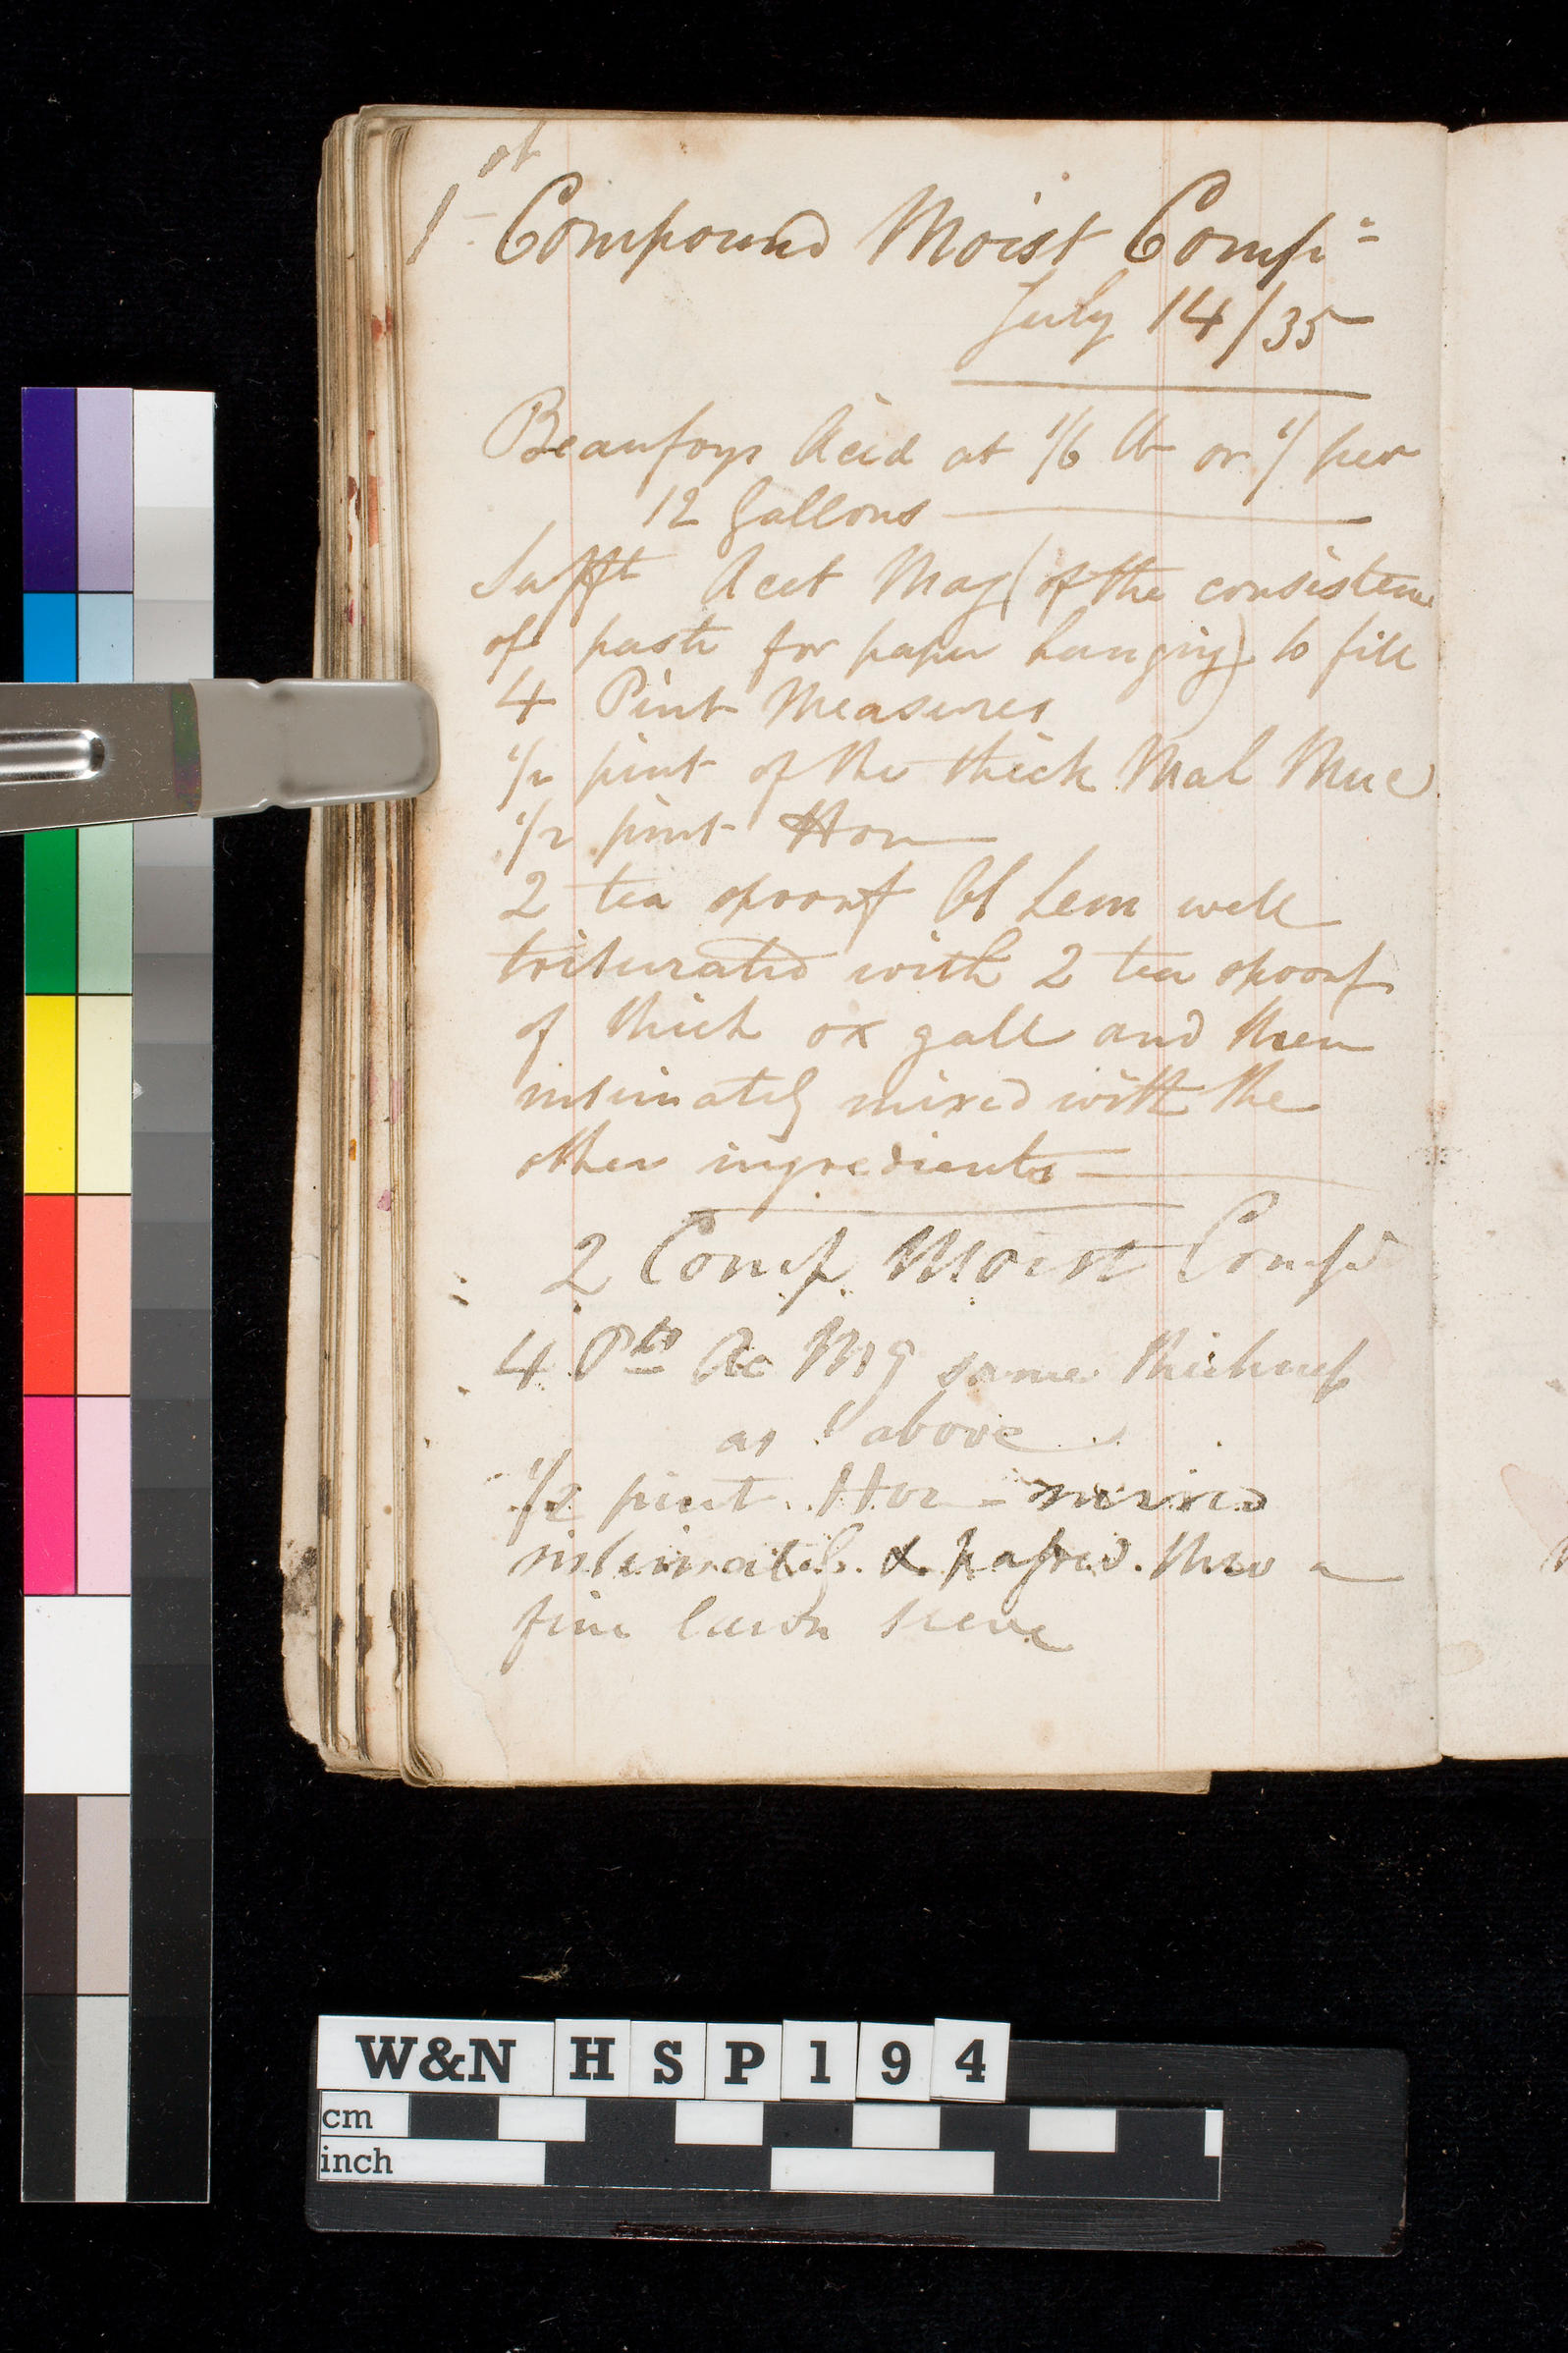 1st Compound Moist Compn
July 14/35
Beaufoys Acid at 1/6 lb or 1/ per
12 Gallons
Sufft Acet Mag (of the consistence
of paste for paper hanging) to fill
4 Pint Measures
1/2 pint of the thick Mal Muc
1/2 pint Hon
2 tea spoonf Ol Lem well
triturated with 2 tea spoonf
of thick ox gall and then
intimately mixed with the
other ingredients
2 Comp Moist Compn
4 Pts Ac Mg same thickness
as above
1/2 pint Hon - mixed
intimately & passed thro a
fine lawn sieve
W&N HSP194
cm
inch